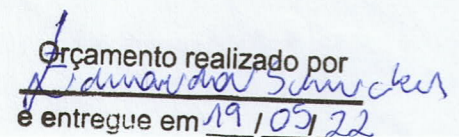 Orçamento realizado por
Eduarda Schneckes
e entregue em 19/05/22